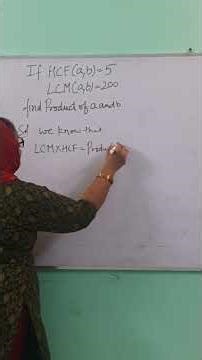 If HCF(a,b)=5
LCM(a,b)=200
find Product of a and b
Sol we know that
LCM×HCF=Produ